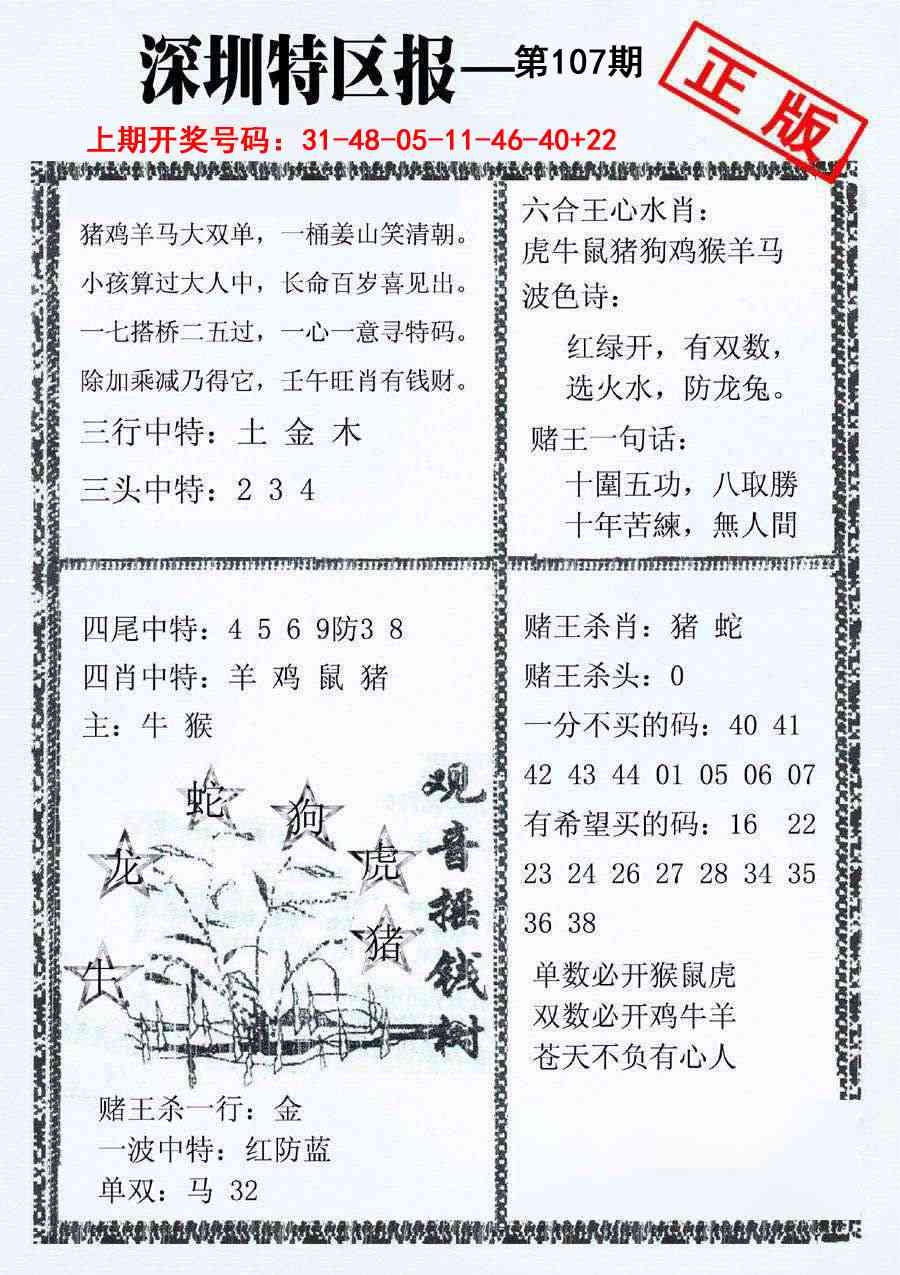 深圳特区报—第107期
正版
上期开奖号码：31-48-05-11-46-40+22
猪鸡羊马大双单，一桶姜山笑清朝。
小孩算过大人中，长命百岁喜见出。
一七搭桥二五过，一心一意寻特码。
除加乘减乃得它，壬午旺肖有钱财。
三行中特：土 金 木
三头中特：2 3 4
六合王心水肖：
虎牛鼠猪狗鸡猴羊马
波色诗：
红绿开，有双数，
选火水，防龙兔。
赌王一句话：
十圍五功，八取勝
十年苦練，無人間
四尾中特：4 5 6 9防3 8
四肖中特：羊 鸡 鼠 猪
主：牛 猴
蛇
狗
龙
虎
猪
牛
观音摇钱树
赌王杀一行：金
一波中特：红防蓝
单双：马 32
赌王杀肖：猪 蛇
赌王杀头：0
一分不买的码：40 41
42 43 44 01 05 06 07
有希望买的码：16 22
23 24 26 27 28 34 35
36 38
单数必开猴鼠虎
双数必开鸡牛羊
苍天不负有心人